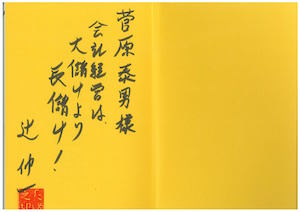 菅原泰男様
会社経営は
大儲けより
長儲け!
辻 伸一